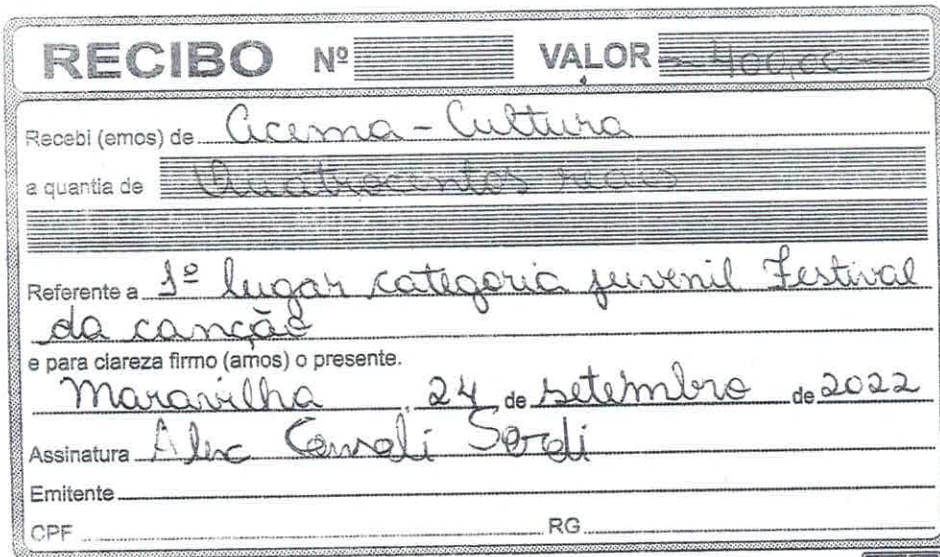 RECIBO Nº VALOR 400,00
Recebi (emos) de Acema - Cultura
a quantia de Quatrocentos reais
Referente a 1º lugar categoria juvenil Festival
da canção
e para clareza firmo (amos) o presente.
Maravilha, 24 de setembro de 2022
Assinatura Alec Sordi
Emitente
CPF RG